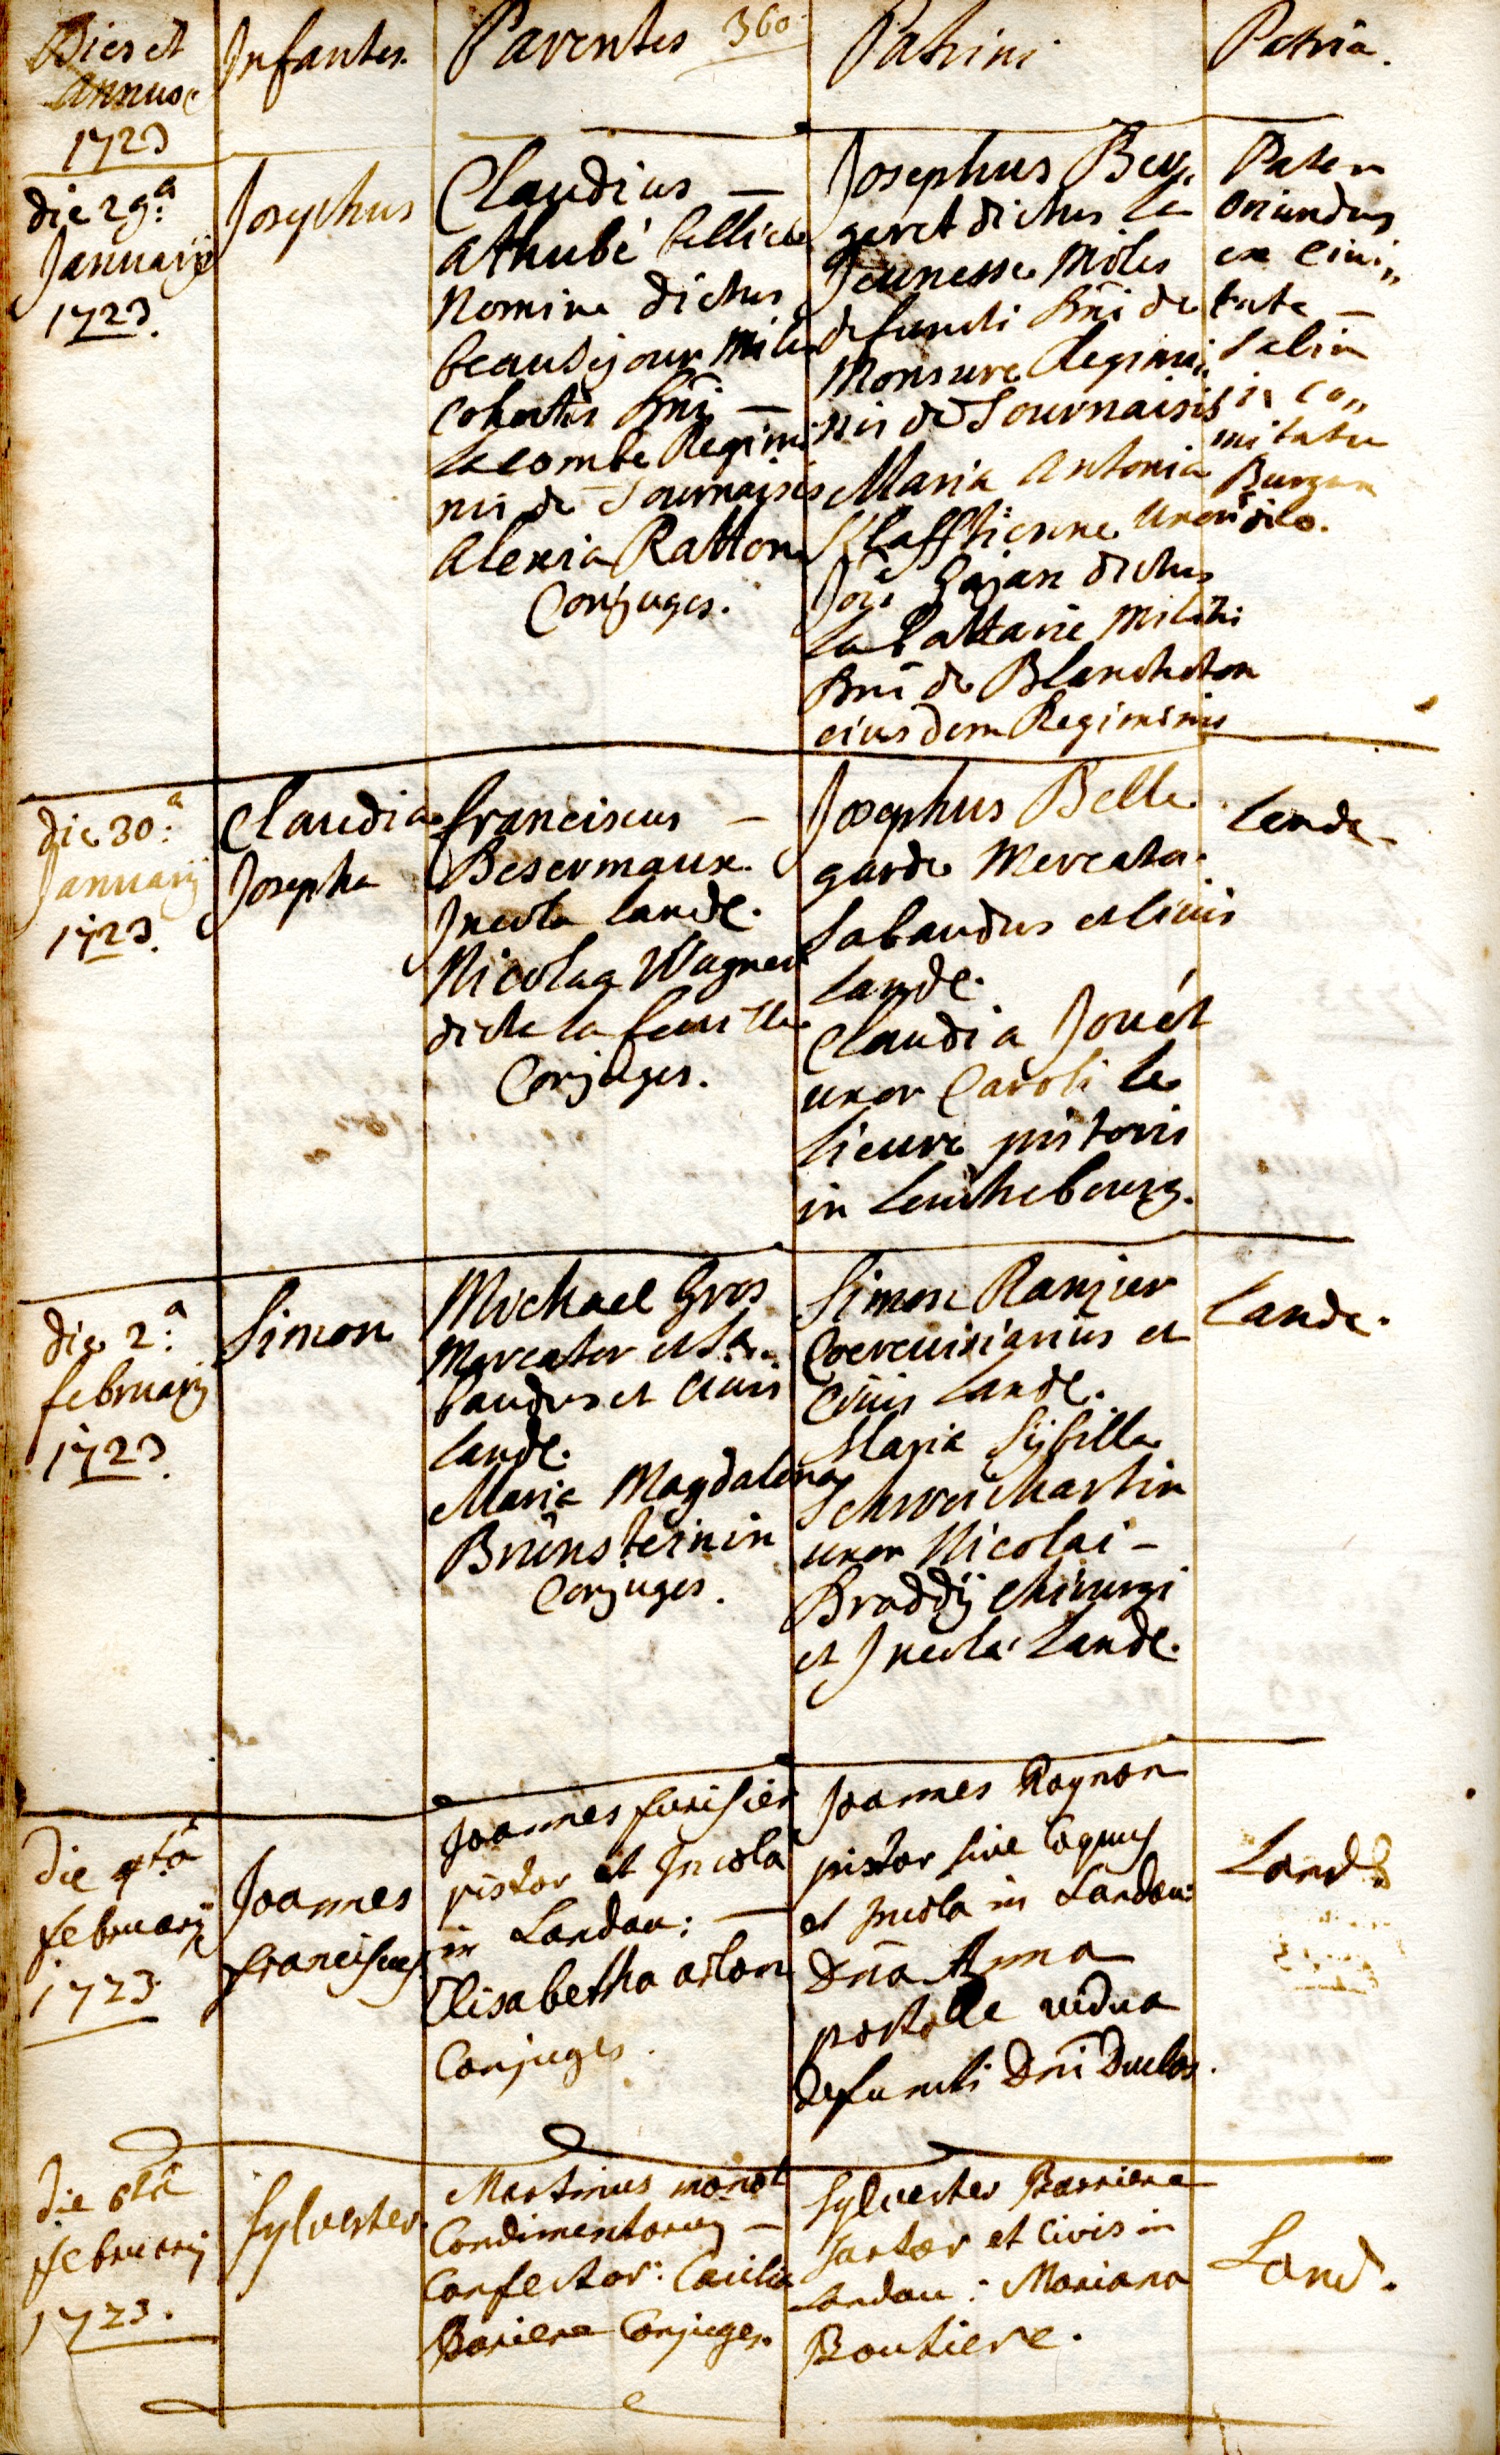 Dies et
Annus
1723
Infantes.
Parentes
360
Patrini
Patria.
die 29:a
Januarÿ
1723.
Josephus
Claudius —
Athubé bellico
Nomine dictus
beausejour Miles
Cohortis Dni —
Lacombe Regimi
nis de Tournaisis
Alexia Ratton
Conjuges.
Josephus Ber„
geret dictus la
Jeunesse Miles
defuncti Dni de
Monsure Regimi„
nis de Tournaisis
Maria Antonia
uxor
Jois Gajan dictus
la militis
Dni de Blancheton
eiusdem Regiminis
Pater
oriundus
ex Civi„
tate —
Salin
in Co„
mitatu
Burgun
dico.
die 30:a
Januarÿ
1723.
Claudia
Josepha
Franciscus —
Besermaux
Incola Landæ.
Nicolaa Wagner
dicta la feuille
Conjuges.
Josephus Belle
garde Mercator
Sabaudus et Civis
Landæ.
Claudia Jouét
uxor Caroli le
lieure pistoris
in
Landæ
die 2:a
februarÿ
1723.
Simon
Michael Gros
Mercator et Sa„
baudus et Civis
Landæ.
Maria Magdalena
Brünsteinin
Conjuges.
Simon Ranzier
Coerevisiarius et
Civis Landæ.
Maria Sÿbilla
Schweickartin
uxor Nicolai —
Braddÿ Chirurgi
et Incola Landæ.
Landæ.
die 4ta
februarÿ
1723
Joannes
franciscus
Joannes furisier
pistor et Incola
in Landau: —
Elisabetha aston
Conjuges.
Joannes Rognon
pistor sive Coquus
et Incola in Landau:
Dna Anna
portalle vidua
defuncti Dni Duclos.
Land:
die 6ta
februarÿ
1723.
Sylvester
Martinus monot
Condimentorum —
Confector: Cæcilia
Bariere Conjuges.
Sylvester Barriere
Sartor et Civis in
Landau: Mariana
Boutiere.
Land.